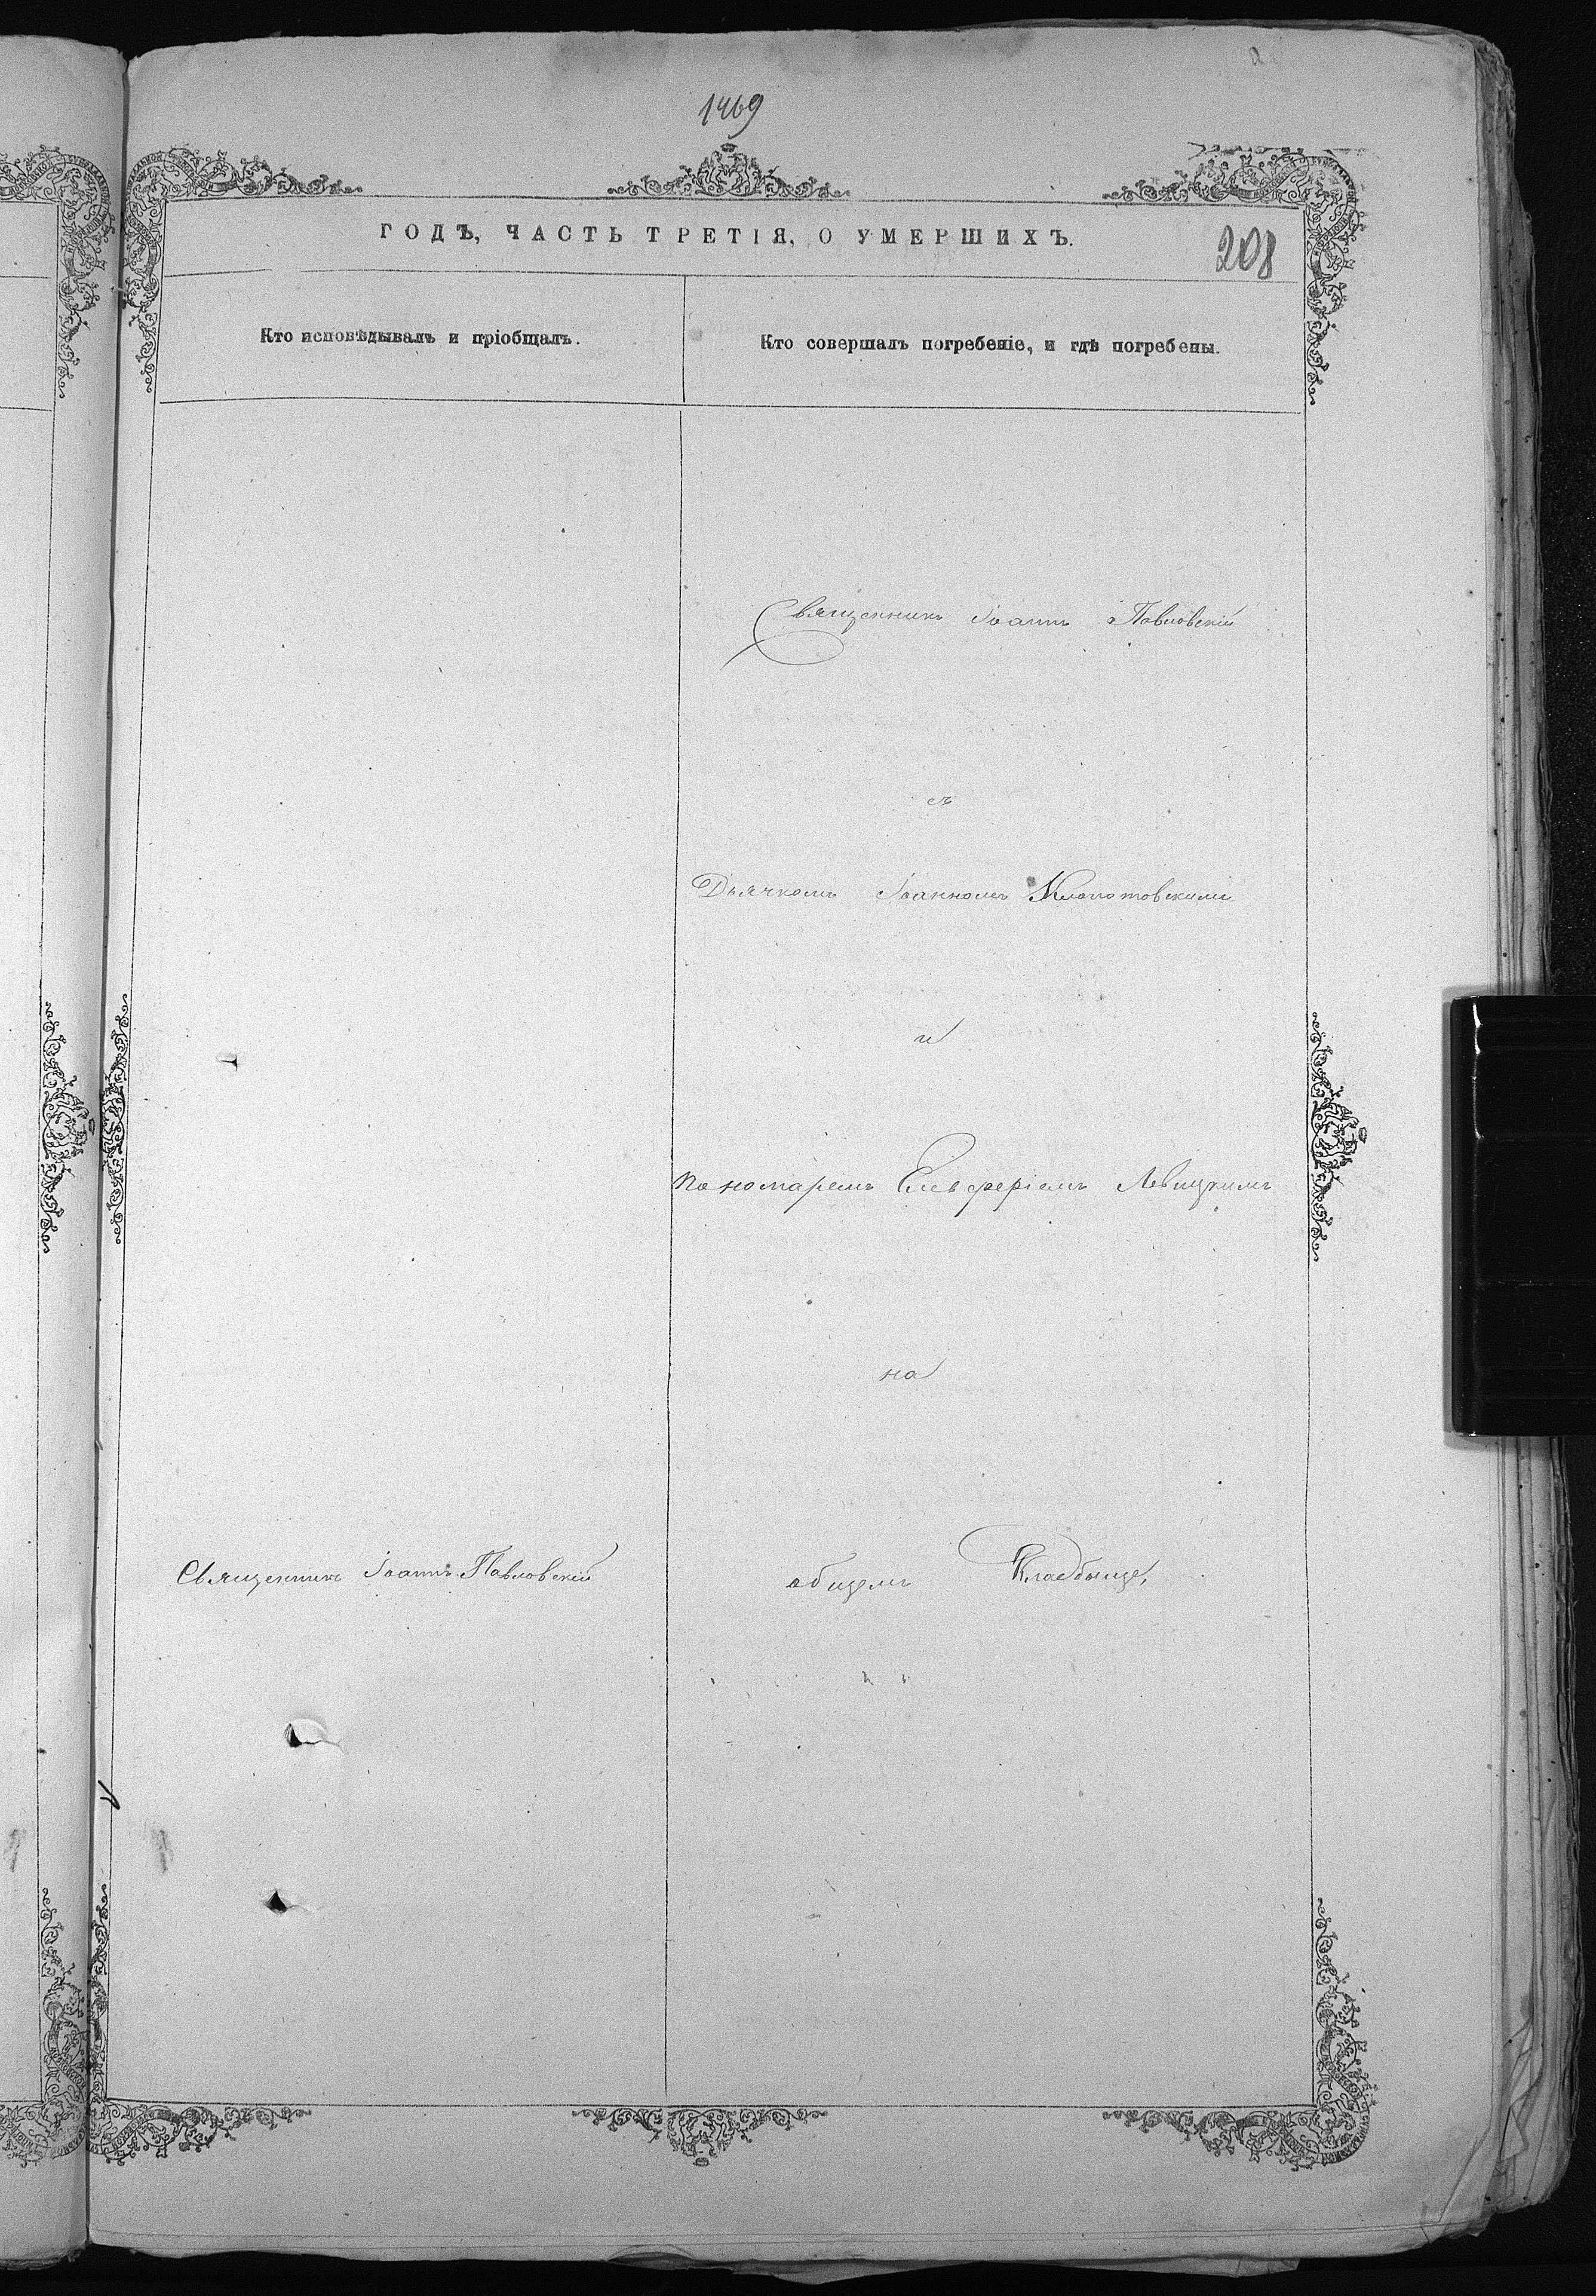 1469
ГОДЪ, ЧАСТЬ ТРЕТІЯ, О УМЕРШИХЪ.
208
Кто исповѣдывалъ и пріобщалъ.
Кто совершалъ погребеніе, и гдѣ погребены.
Священникъ Іоаннъ Павловскій
съ
Дьячкомъ Іоанномъ Клопотовскимъ
и
пономаремъ Елевферіемъ Левицкимъ
на
Священникъ Іоаннъ Павловскій
общемъ Кладбище,